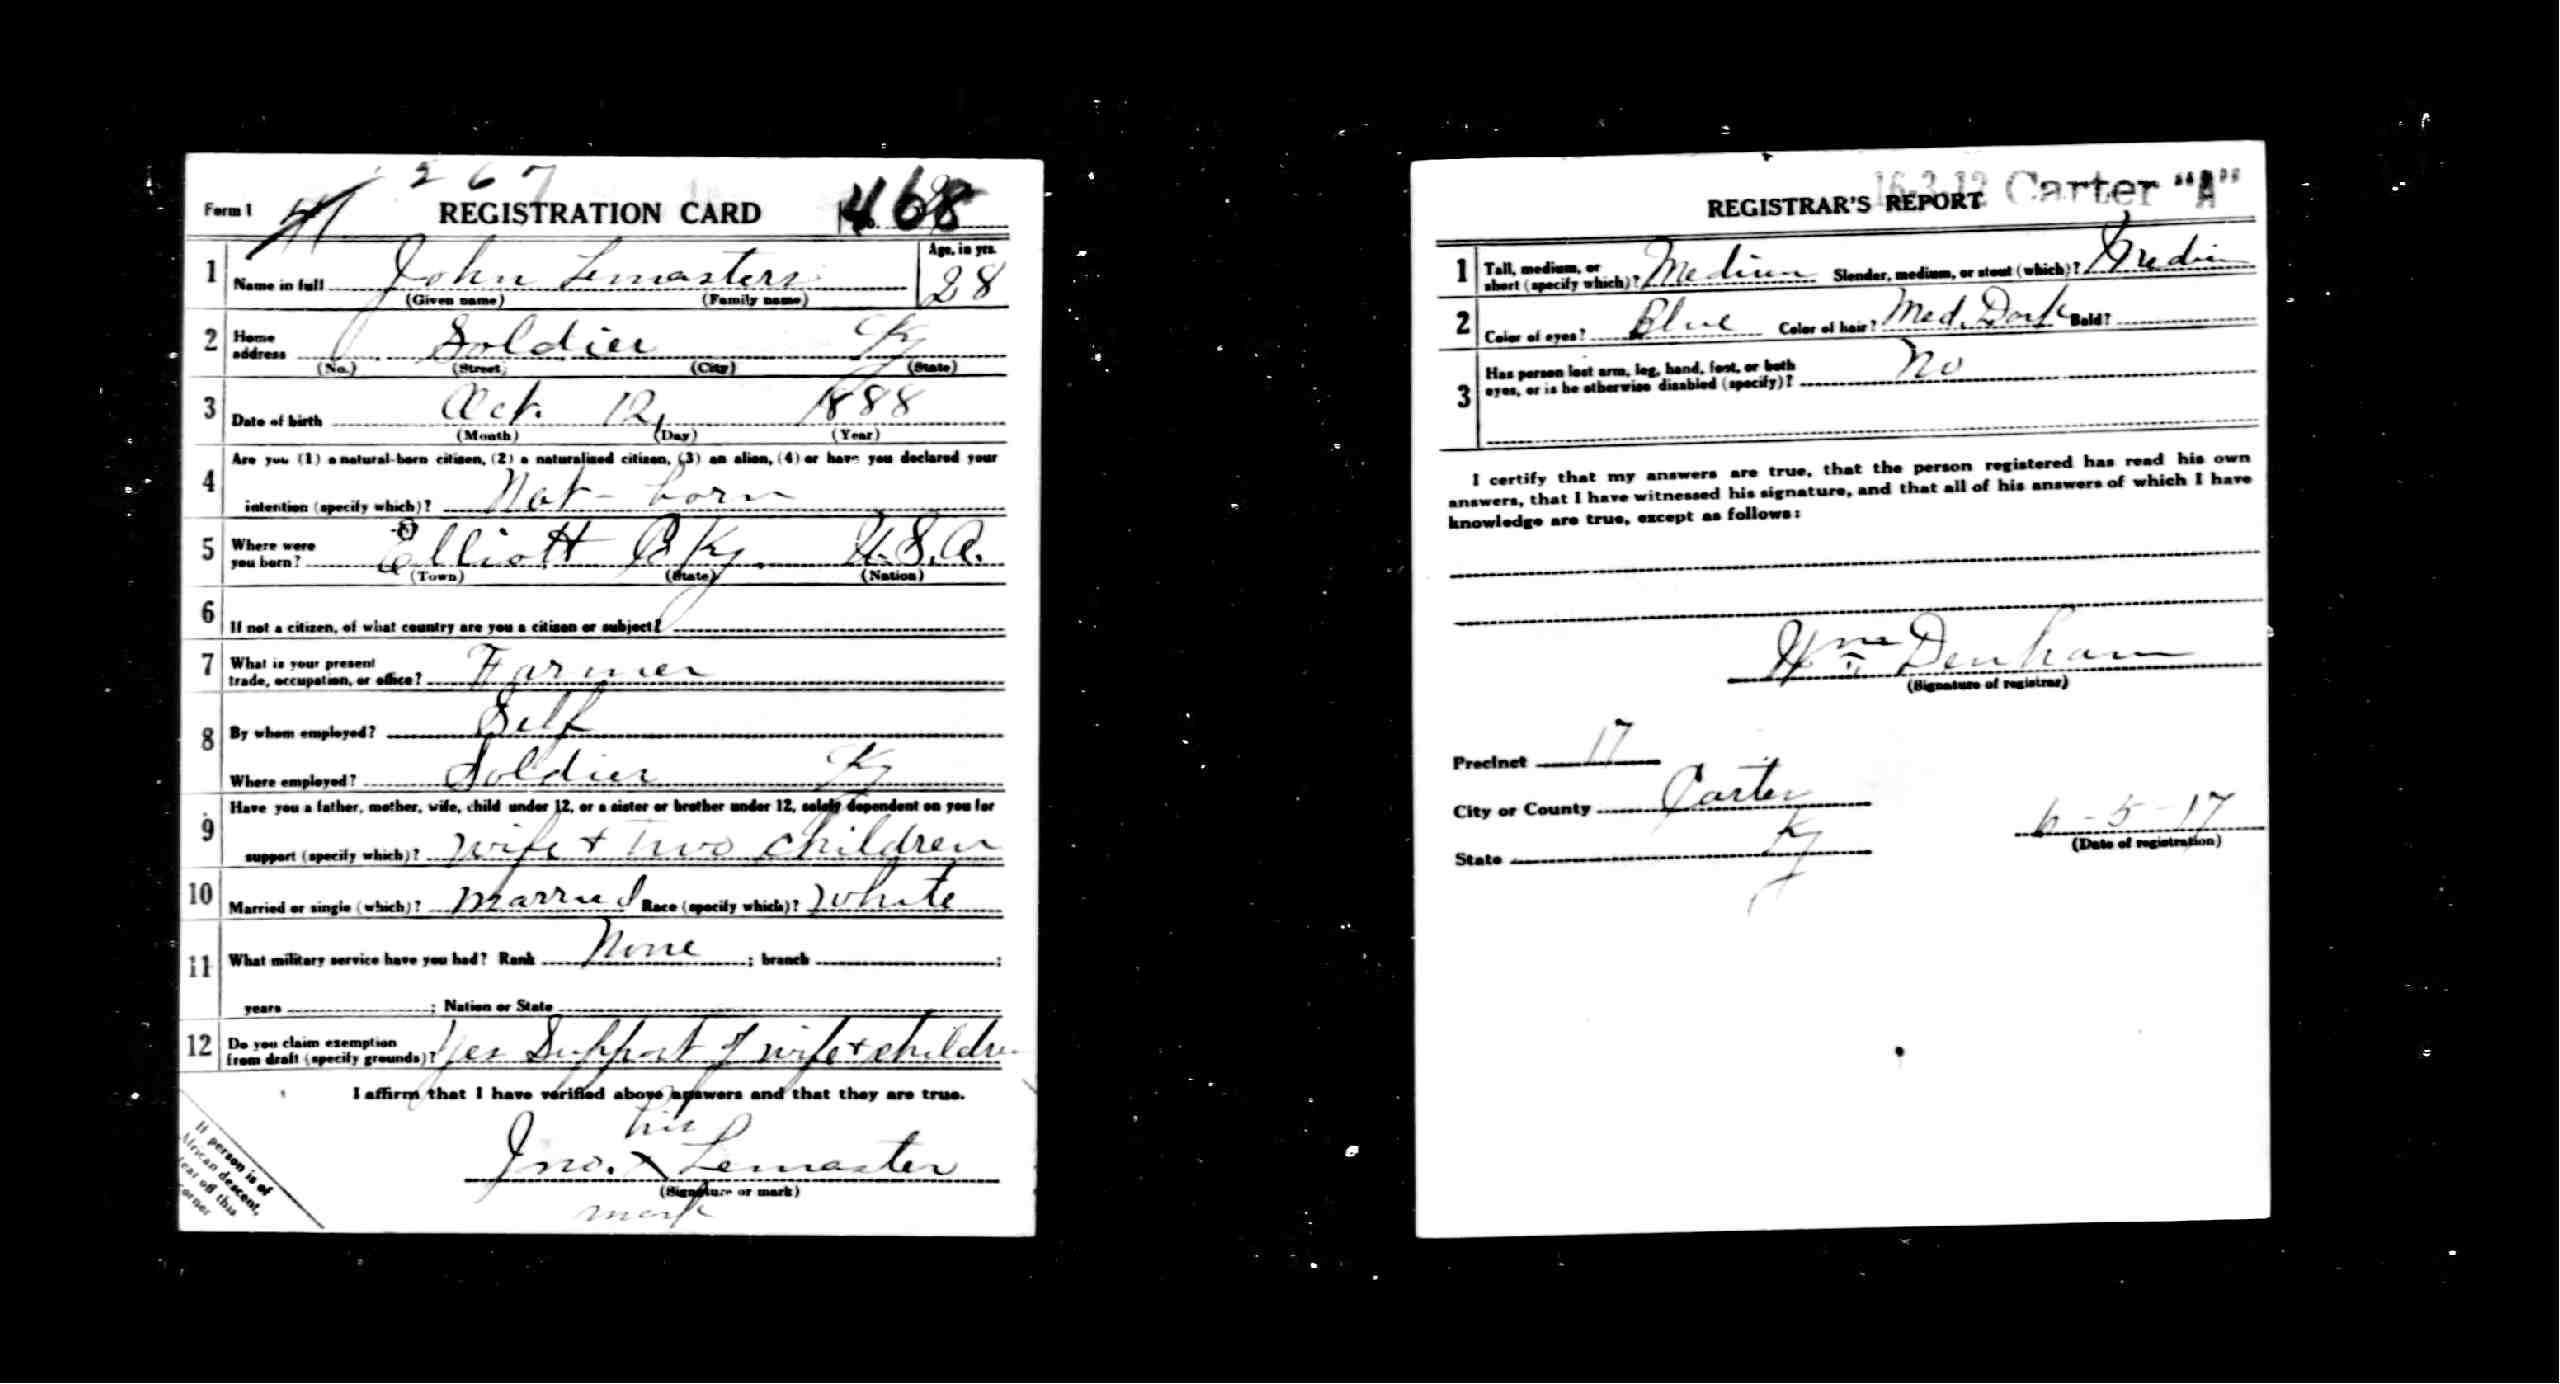 267
Form 1 REGISTRATION CARD No. 468
1 Name in full John Lemasters Age, in yrs. 28
(Given name) (Family name)
2 Home address Soldier Ky
(No.) (Street) (City) (State)
3 Date of birth Oct. 12, 1888
(Month) (Day) (Year)
4 Are you (1) a natural-born citizen, (2) a naturalized citizen, (3) an alien, (4) or have you declared your
intention (specify which)? Nat-born
5 Where were you born? Elliott Co Ky. U.S.A.
(Town) (State) (Nation)
6 If not a citizen, of what country are you a citizen or subject?
7 What is your present trade, occupation, or office? Farmer
8 By whom employed? Self
Where employed? Soldier Ky
9 Have you a father, mother, wife, child under 12, or a sister or brother under 12, solely dependent on you for
support (specify which)? wife + Two children
10 Married or single (which)? Married Race (specify which)? White
11 What military service have you had? Rank None ; branch ;
years ; Nation or State
12 Do you claim exemption from draft (specify grounds)? Yes Support of wife + children
I affirm that I have verified above answers and that they are true.
his
Jno. X Lemaster
(Signature or mark)
mark
If person is of
African descent,
tear off this
corner
16-3-12 Carter "A"
REGISTRAR'S REPORT
1 Tall, medium, or short (specify which)? Medium Slender, medium, or stout (which)? Medium
2 Color of eyes? Blue Color of hair? Med. Dark Bald?
3 Has person lost arm, leg, hand, foot, or both
eyes, or is he otherwise disabled (specify)? No
I certify that my answers are true, that the person registered has read his own
answers, that I have witnessed his signature, and that all of his answers of which I have
knowledge are true, except as follows:
Wm Denham
(Signature of registrar)
Precinct 17
City or County Carter
State Ky
6-5-17
(Date of registration)